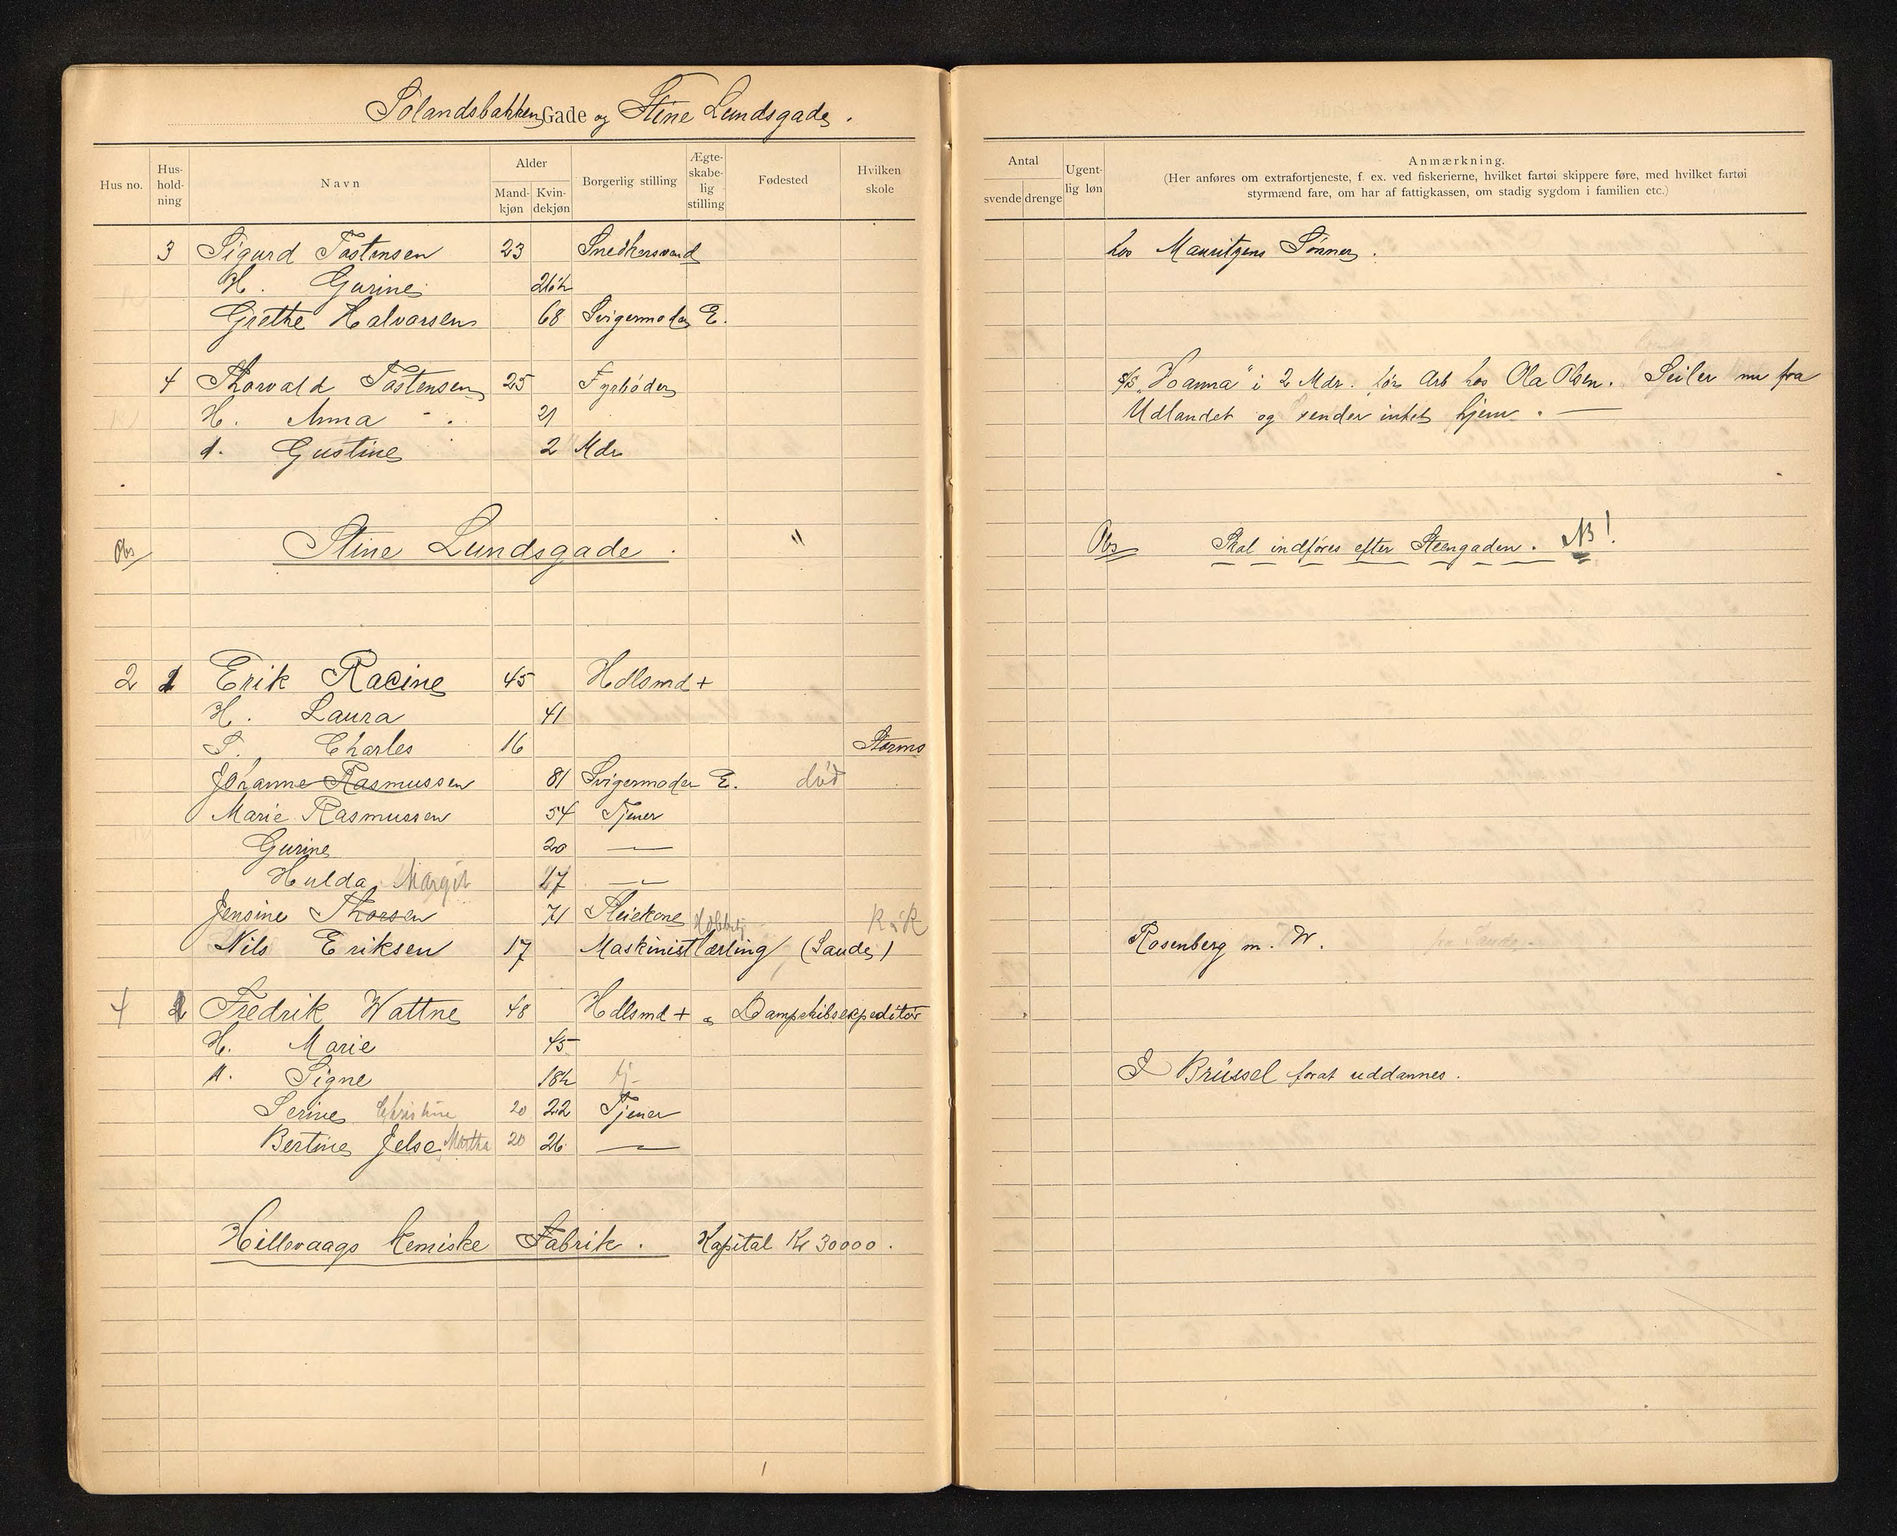 Solandsbakken Gade og Stine Lundsgade.
Hus no. Hus-hold-ning Navn Alder Mand-kjøn Kvin-dekjøn Borgerlig stilling Ægte-skabe-lig stilling Fødested Hvilken skole
Antal svende drenge Ugent-lig løn Anmærkning.
(Her anføres om extrafortjeneste, f. ex. ved fiskerierne, hvilket fartøi skippere føre, med hvilket fartøi
styrmænd fare, om har af fattigkassen, om stadig sygdom i familien etc.)
3 Sigurd Tostensen 23 Snedkersvend hos Mauritzens Sønner.
H. Gurine 26½
Grethe Halvorsen 68 Svigermoder E.
4 Thorvald Tostensen 25 Fyrbøder "Hanna" i 2 Mdr. før Arb hos Ola Olsen. Seiler nu fra
H. Anna 21 Udlandet og sender intet hjem. —
d. Gustine 2 Mdr
Obs Stine Lundsgade. " Obs Skal indføres efter Steengaden. NB!
2 1 Erik Racine 45 Hdlsmd +
H. Laura 41
S. Charles 16 Storms
Johanne Rasmussen 81 Svigermoder E. død
Marie Rasmussen 54 Tjener
Gurine 20 —
Hulda Margit 27 —
Jensine Thorsen 71 Pleiekone K&K
Nils Eriksen 17 Maskinistlærling (Saude) Rosenberg m. W.
4 1 Fredrik Wattne 48 Hdlsmd + & Dampskibsexpeditør
H. Marie 45
d. Signe 18½ tj- I Brüssel forat uddannes.
Serine Christine 20 22 Tjener
Bertine Jelse Martha 20 26 —
Hillevaags kemiske Fabrik. Kapital Kr 30000.